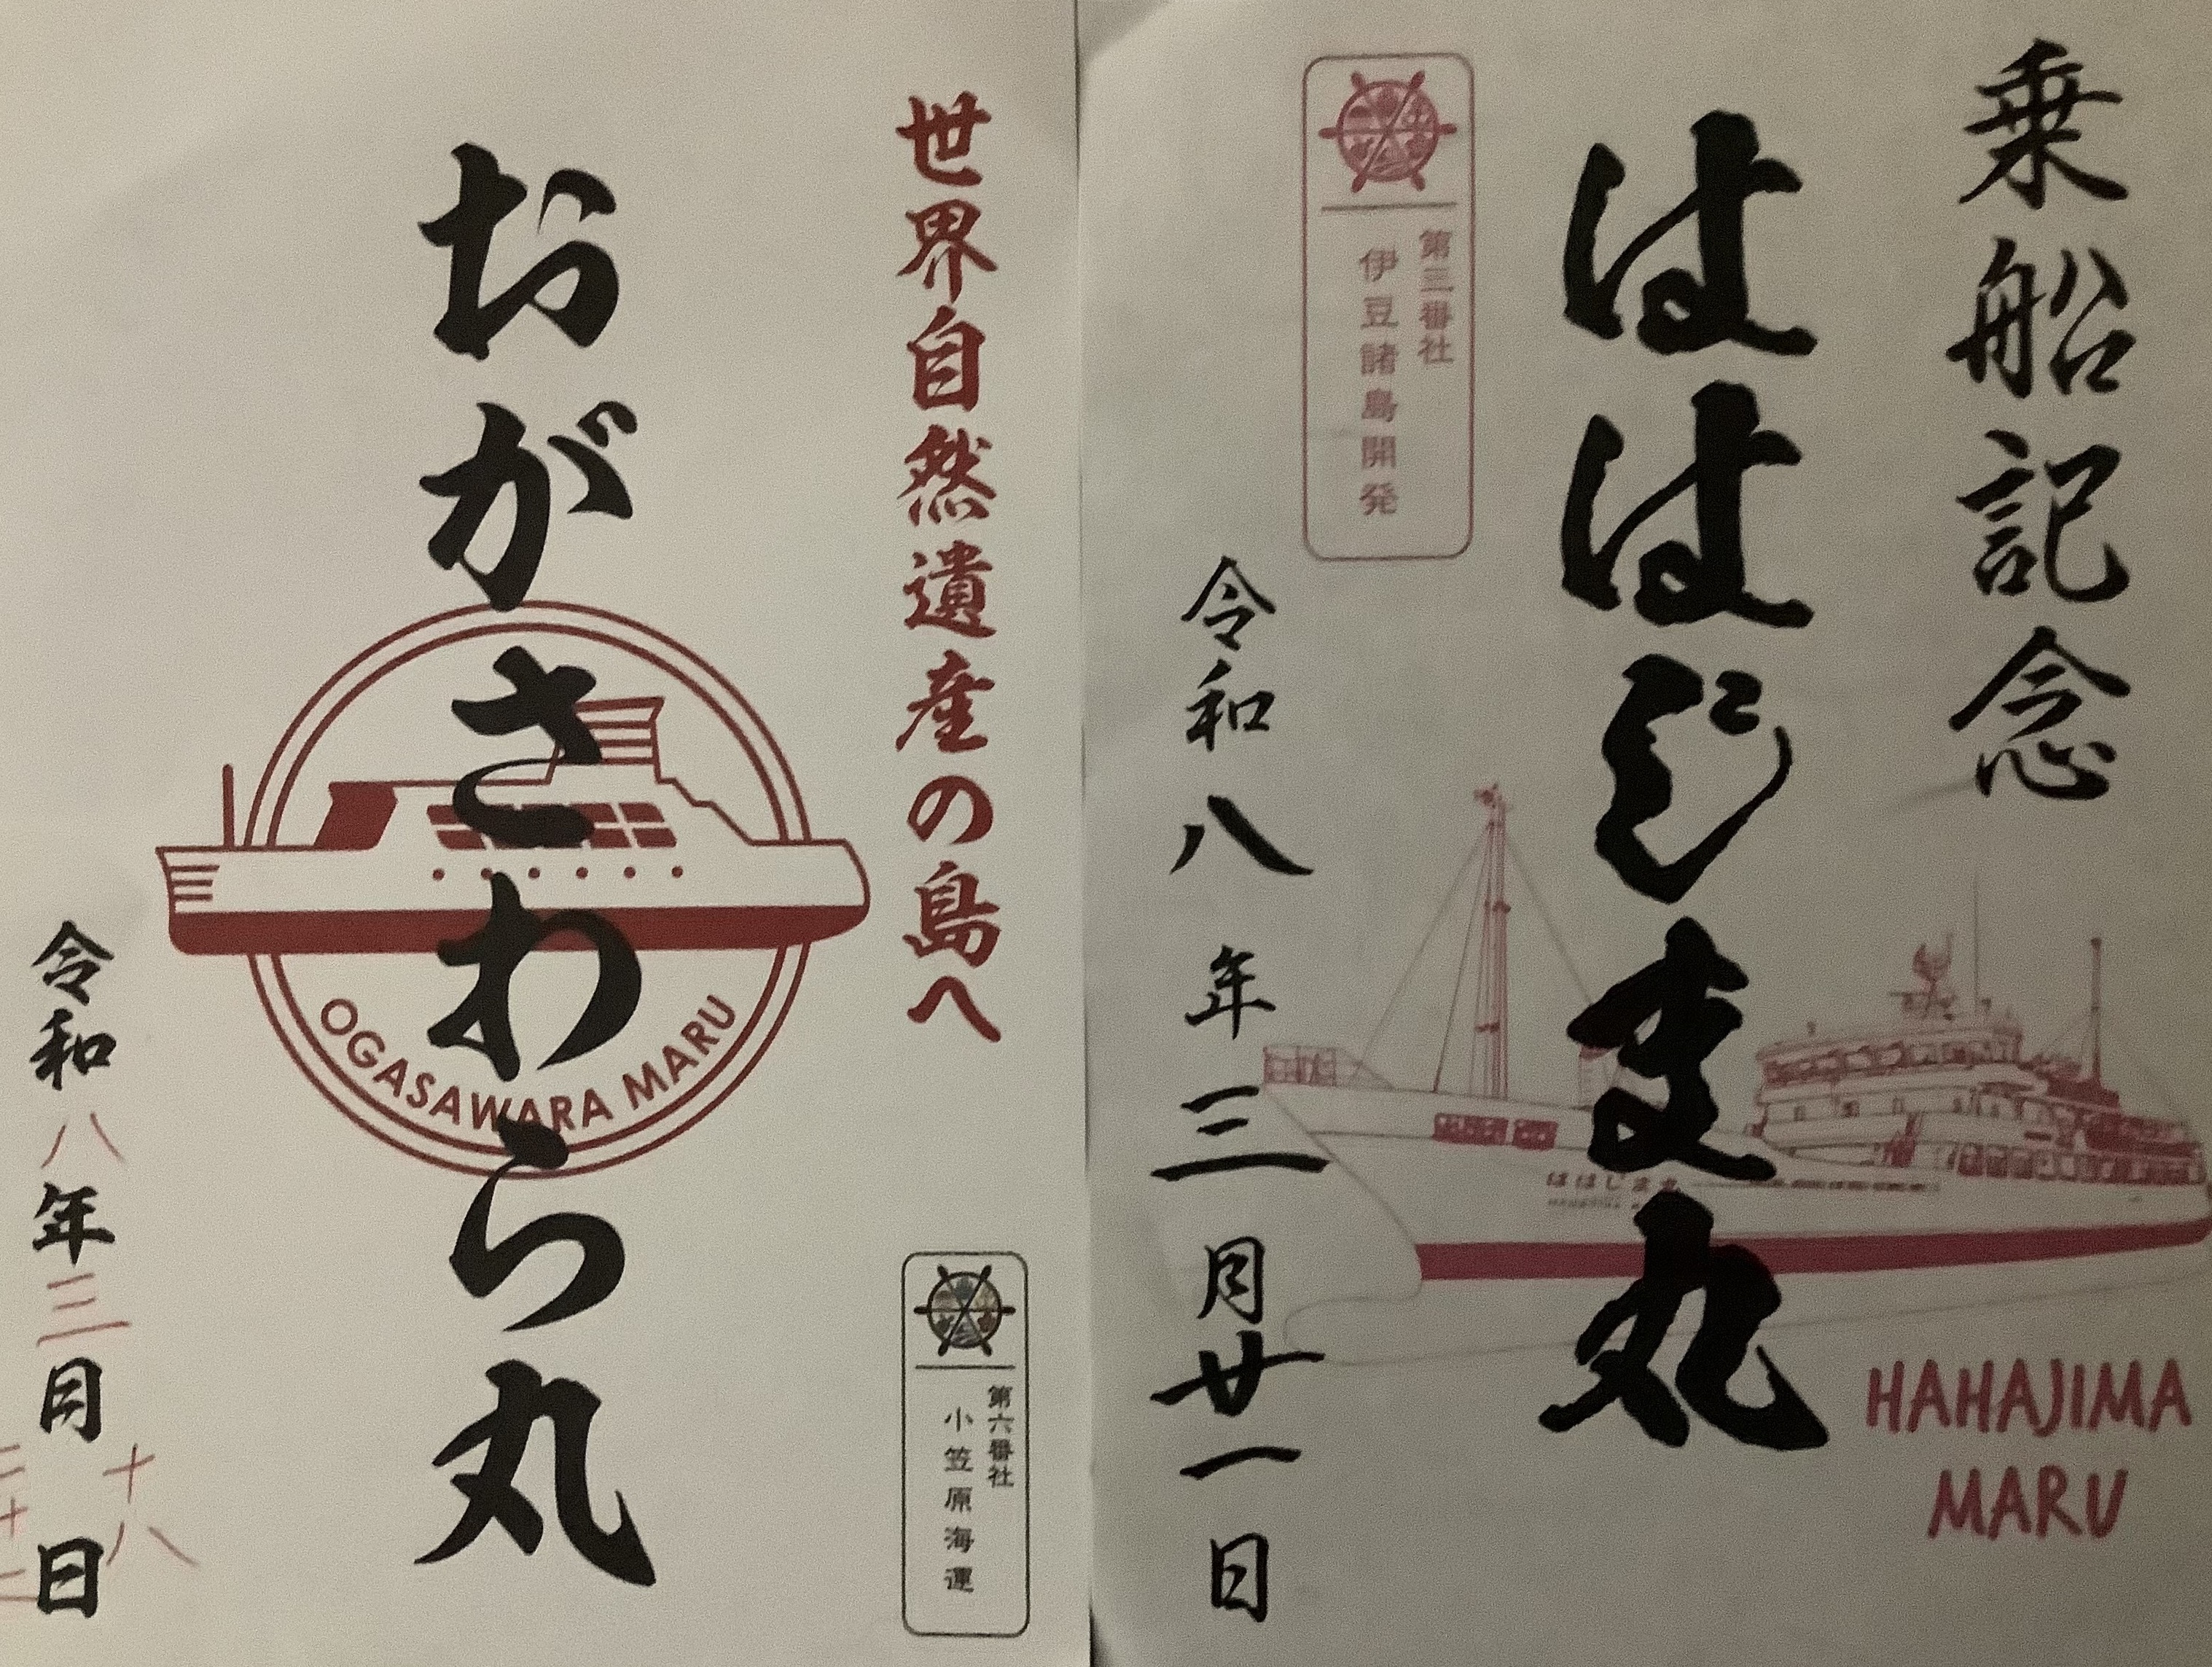 乗船記念
ははじま丸
HAHAJIMA
MARU
第三番社
伊豆諸島開発
令和八年三月廿一日
世界自然遺産の島へ
第六番社
小笠原海運
おがさわら丸
OGASAWARA MARU
十八
令和八年三月日